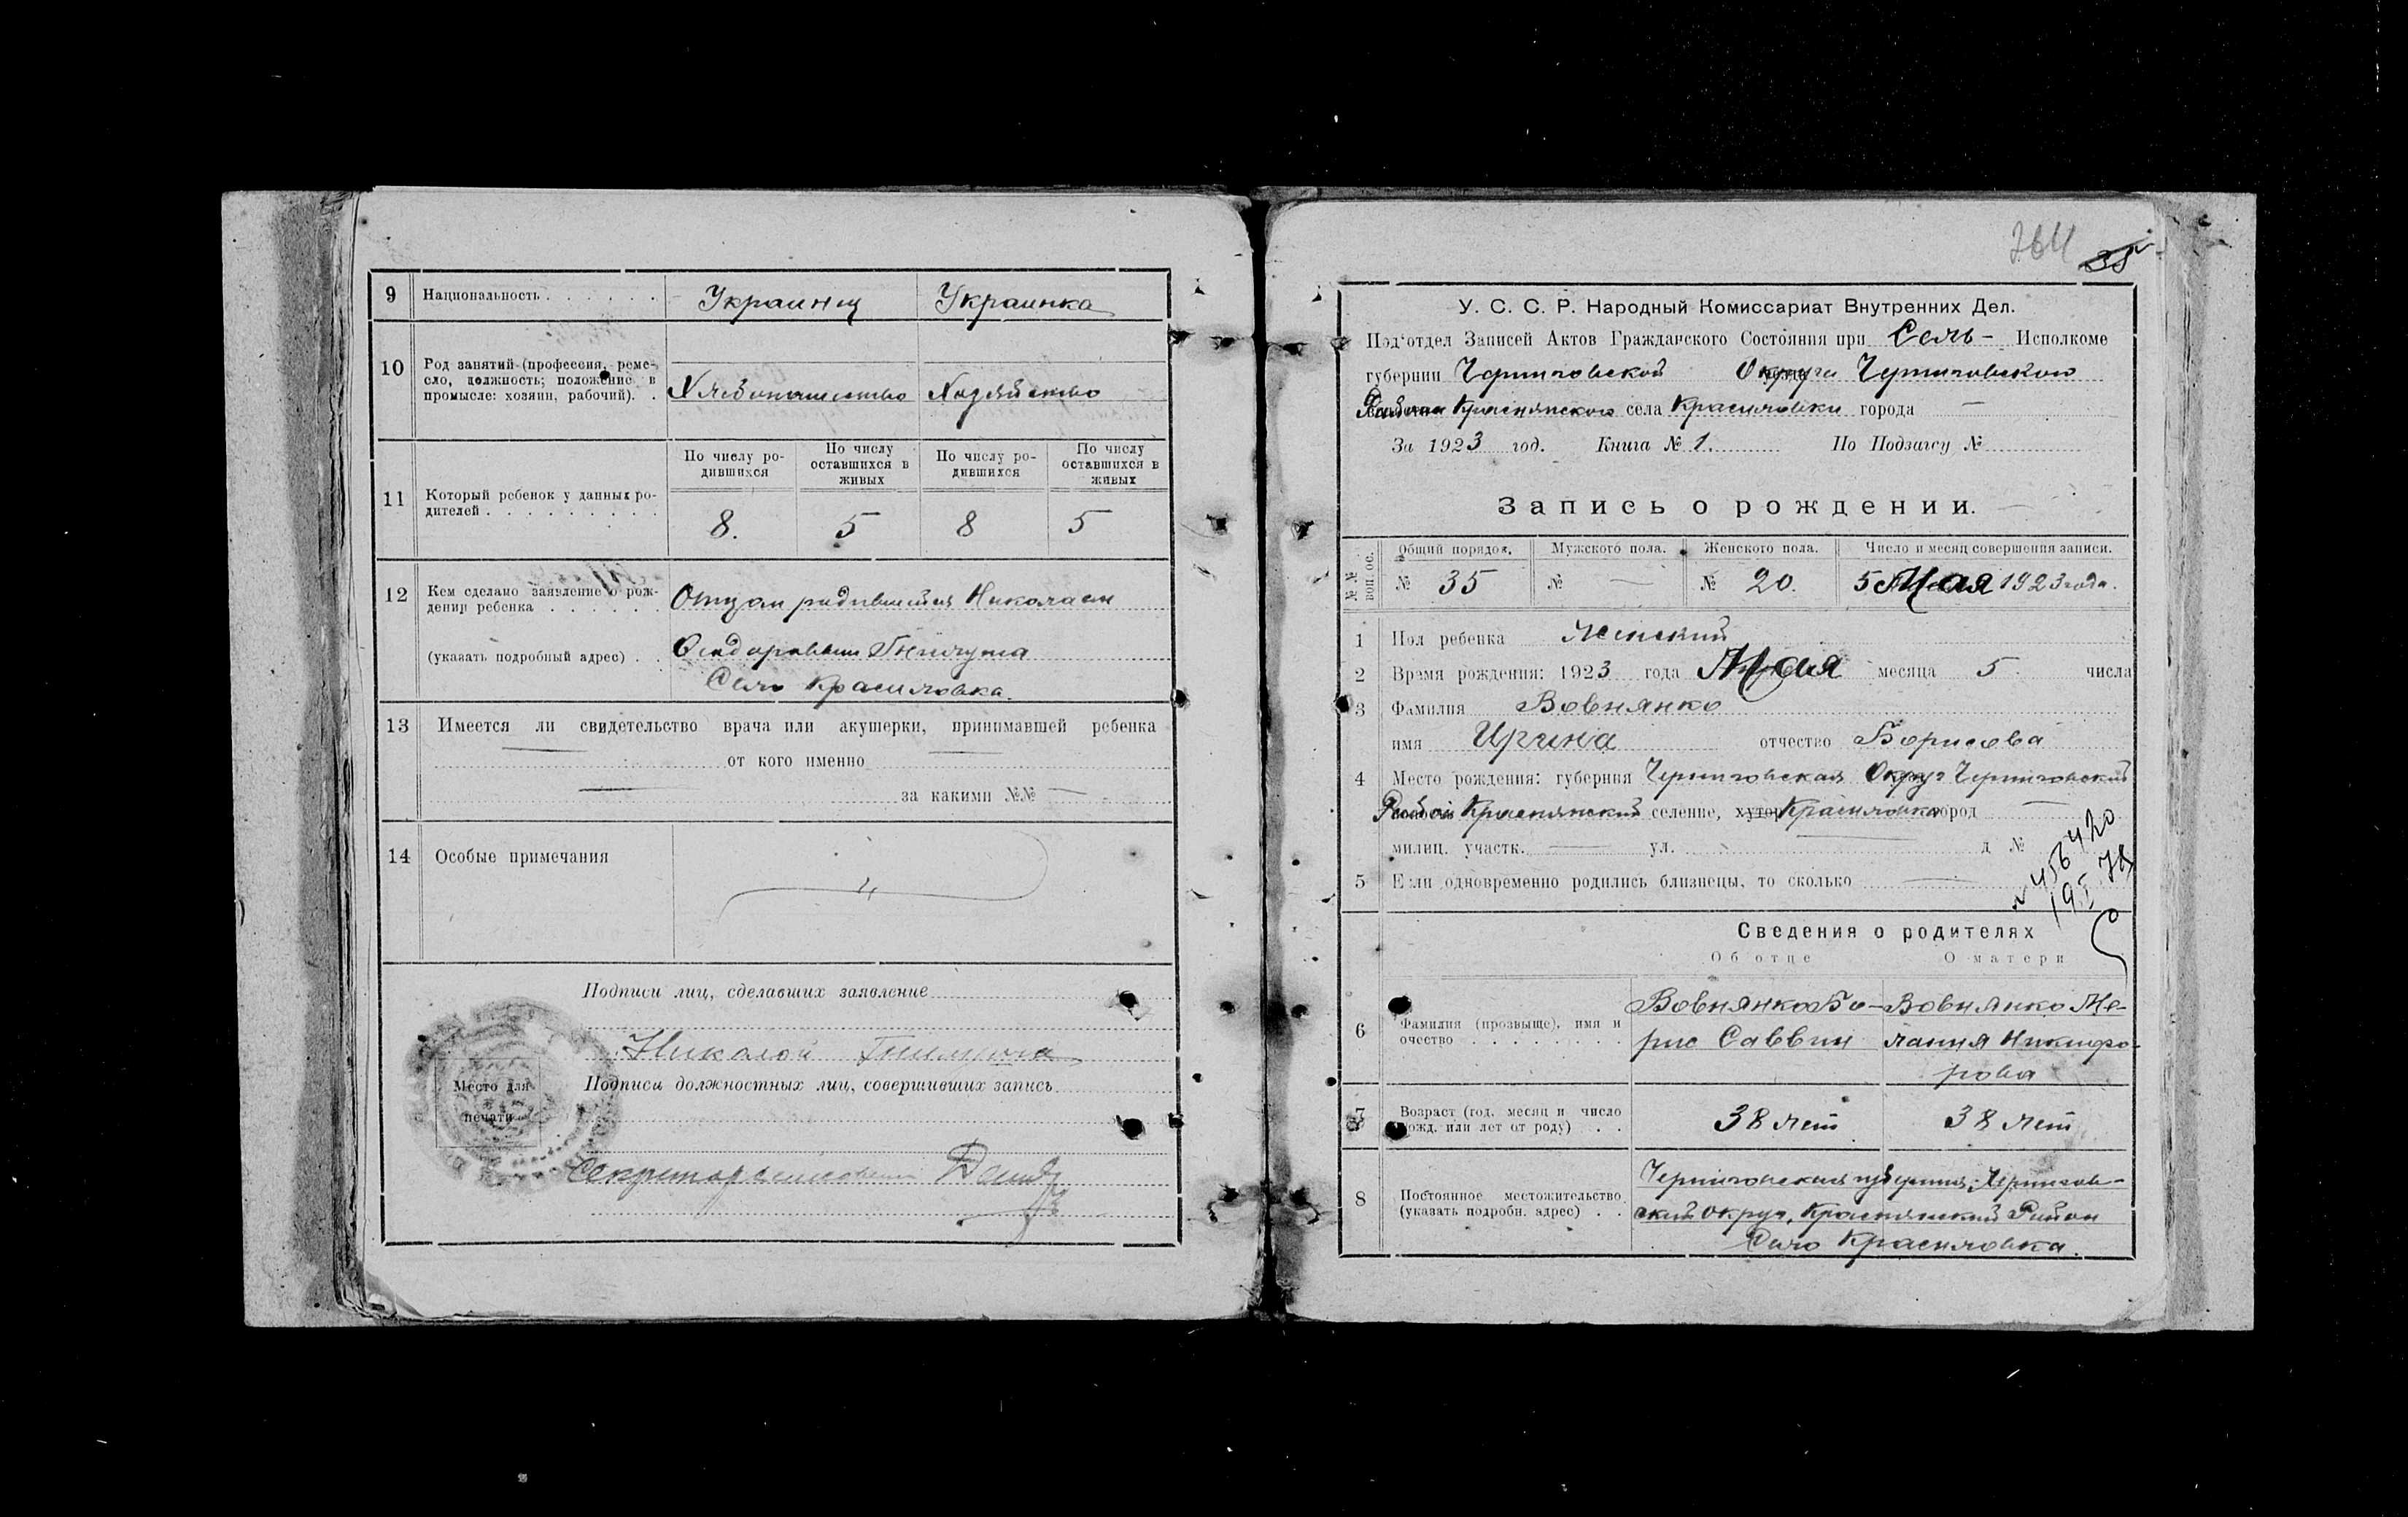 9 Национальность Украинец Украинка
10 Род занятий (профессия, реме-
сло, должность; положение в
промысле: хозяин, рабочий). Хлебопашество Хозяйство
11 Который ребенок у данных ро-
дителей
По числу ро-
дившихся
По числу
оставшихся в
живых
По числу ро-
дившихся
По числу
оставшихся в
живых
8. 5 8 5
12 Кем сделано заявление о рож-
дении ребенка Отцом родившейся Николаем
(указать подробный адрес)
Село Красиловка.
13 Имеется ли свидетельство врача или акушерки, принимавшей ребенка
от кого именно
за какими №№
14 Особые примечания
Подписи лиц, сделавших заявление
Николой
Место для
печати
Подписи должностных лиц, совершивших запись
Секретарь
764 35
У. С. С. Р. Народный Комиссариат Внутренних Дел.
Под'отдел Записей Актов Гражданского Состояния при Сель- Исполкоме
губернии Черниговской Округи Черниговского
Района Краснянского села Красиловки города —
За 1923 год. Книга № 1. По Подзагсу №
Запись о рождении.
№№ воп. ос.
Общий порядок. Мужского пола. Женского пола. Число и месяц совершения записи.
№ 35 № — № 20. 5 Мая 1923 года.
1 Пол ребенка Женский
2 Время рождения: 1923 года Мая месяца 5 числа
3 Фамилия Вовнянко
имя Ирина отчество Борисова
4 Место рождения: губерния Черниговская Округ Черниговский
Район Краснянский селение, хутор Красиловка город —
милиц. участк. — ул. д №
5 Если одновременно родились близнецы, то сколько —
Сведения о родителях
Об отце О матери
6 Фамилия (прозвыще), имя и
очество
Вовнянко Бо-
рис Саввин
Вовнянко Ме-
лания Никифо-
рова
7 Возраст (год, месяц и число
рожд. или лет от роду) 38 лет 38 лет
8 Постоянное местожительство
(указать подробн. адрес)
Черниговская губерния, Чернигов-
ский округ, Краснянский Район
Село Красиловка.